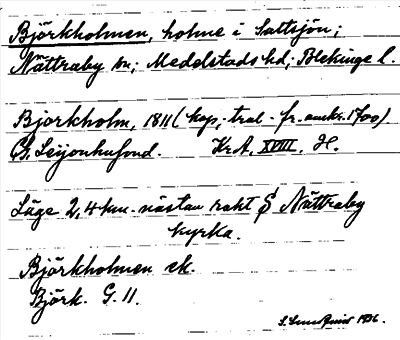 Björkholmen, holme i Saltsjön;
Nättraby sn; Medelstads hd; Blekinge l.
Björkholm, 1811 (kop. - trol - fr. omkr. 1700)
G. Leijonhufvud. Kr.A. XVIII. H.
Läge 2,4 km. nästan rakt S Nättraby
kyrka.
Björkholmen ek.
Björk. G. 11.
S. Lundquist 1936.